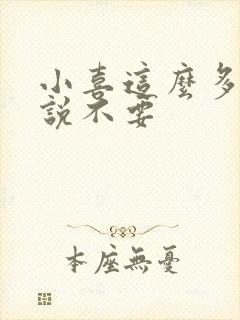 小喜這麼多
說不要
本座無憂